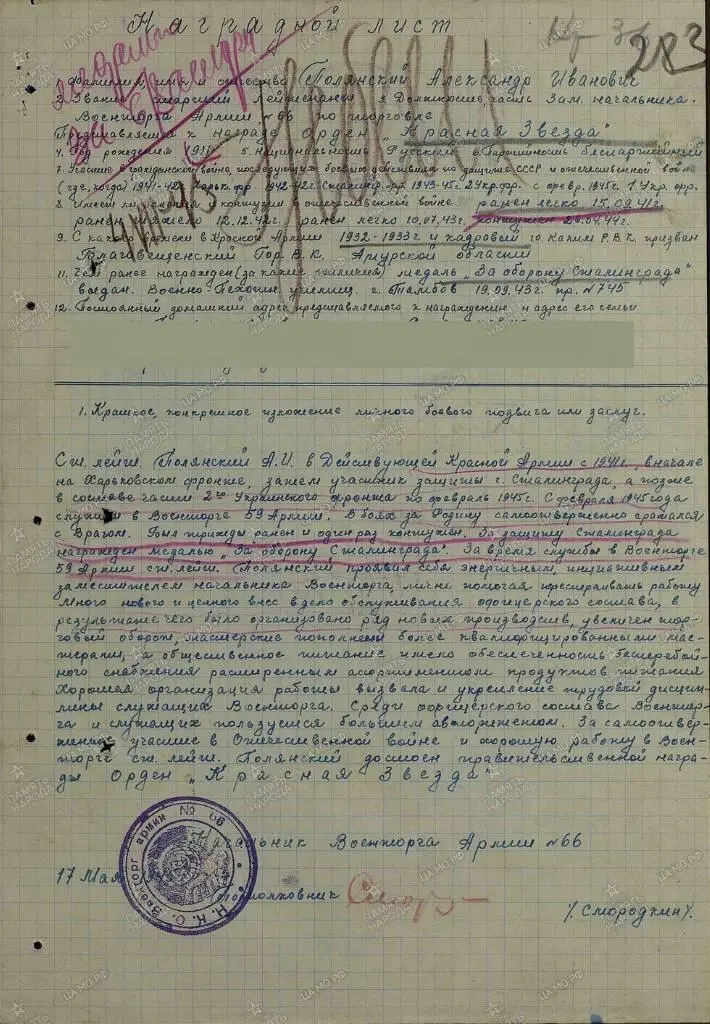 Наградной лист
283
1. Фамилия, имя и отчество Полянский Александр Иванович
2. Звание старший лейтенант 3. Должность, часть Зам. начальника
Военторга Армии №66 по торговле
Представляется к награде Орден „Красная Звезда"
4. Год рождения 5. Национальность Русский 6. Партийность беспартийный
7. Участие в гражданской войне, последующих боевых действиях по защите СССР и отечественной войне
(где, когда) 1941-42г. Харьк. фр. 1942-42г. Сталингр. фр. 1943-45г. 2 Укр. фр. с февр. 1945г. 1 Укр. фр.
8. Имеет ли ранения и контузии в отечественной войне ранен легко 15.09.41г.
ранен тяжело 12.12.42г. ранен легко 10.07.43г. контужен 26.04.44г.
9. С какого времени в Красной Армии 1932-1933г. и кадровый 10. Каким Р.В.К. призван
Благовещенский Гор. В.К. Амурской области
11. Чем ранее награжден (за какие отличия) медаль „За оборону Сталинграда"
выдан. Военно-Пехотн. училищ. г. Тамбов 19.09.43г. пр. №745
12. Постоянный домашний адрес представляемого к награждению и адрес его семьи
1. Краткое, конкретное изложение личного боевого подвига или заслуг.
Ст. лейт. Полянский А.И. в Действующей Красной Армии с 1941г., вначале
на Харьковском фронте, затем участник защиты г. Сталинграда, а позже
в составе части 2го Украинского фронта по февраль 1945г. С февраля 1945 года
служит в Военторге 59 Армии. В боях за Родину самоотверженно сражался
с Врагом. Был трижды ранен и один раз контужен. За защиту Сталинграда
награжден медалью „За оборону Сталинграда". За время службы в Военторге
59 Армии ст. лейт. Полянский проявил себя энергичным, инициативным
заместителем начальника Военторга, лично помогая перестраивать работу
много нового и ценного внес в дело обслуживания офицерского состава, в
результате чего было организовано ряд новых производств, увеличен тор-
говый оборот, мастерские пополнены более квалифицированными мас-
терами, а общественное питание имело обеспеченность бесперебой-
ного снабжения расширенным ассортиментом продуктов питания
Хорошая организация работы вызвала и укрепление трудовой дисцип-
лины служащих Военторга. Среди офицерского состава Военторг-
га и служащих пользуется большим авторитетом. За самоотвер-
женное участие в Отечественной войне и хорошую работу в Воен-
торге ст. лейт. Полянский достоин правительственной награ-
ды Орден „Красная Звезда"
Начальник Военторга Армии №66
17 Мая
Подполковник
/Смородкин/.
Н.К.О. Военторг армии № 66